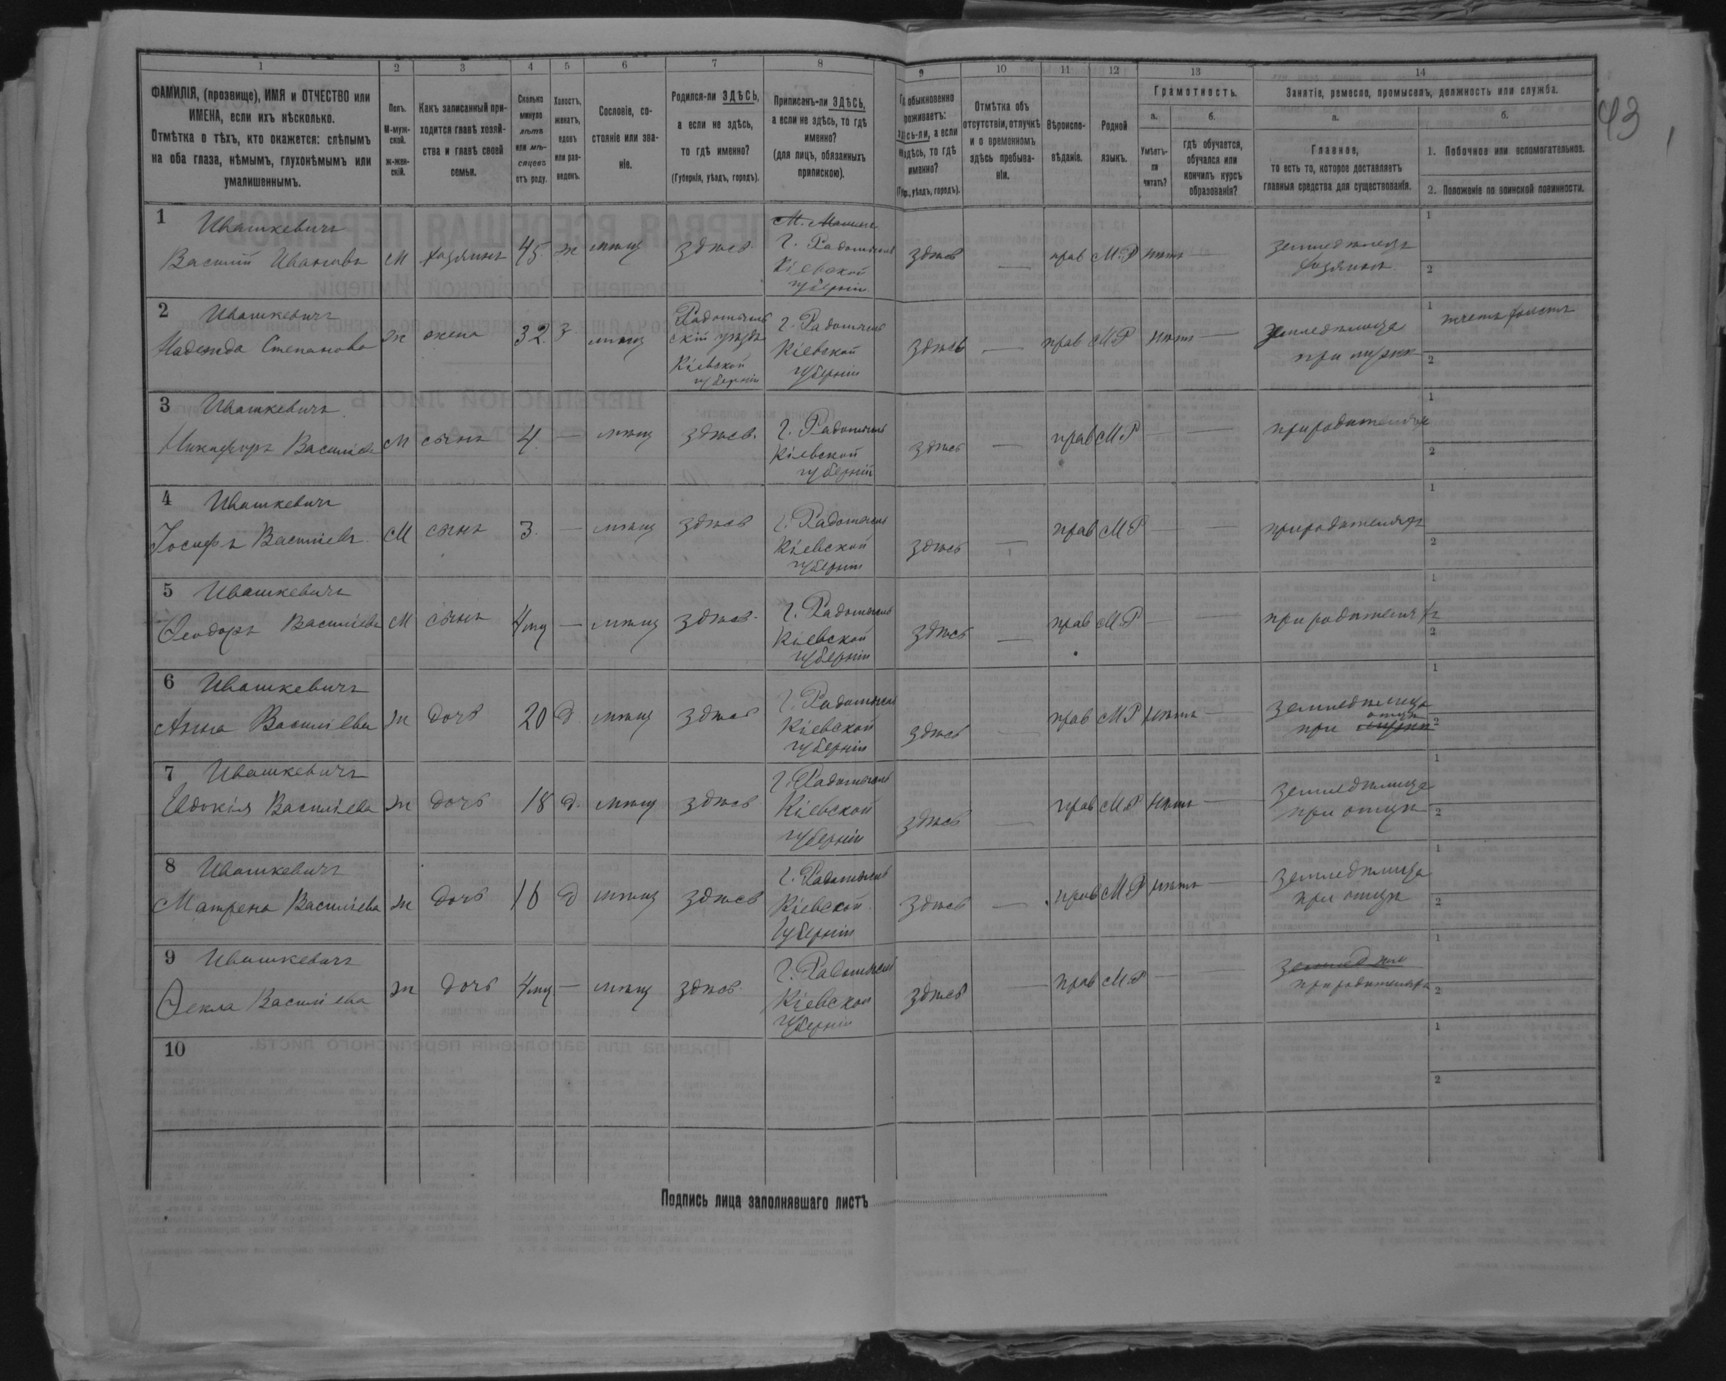 1 2 3 4 5 6 7 8 9 10 11 12 13 14
ФАМИЛІЯ, (прозвище), ИМЯ и ОТЧЕСТВО или
ИМЕНА, если ихъ нѣсколько.
Отмѣтка о тѣхъ, кто окажется: слѣпымъ
на оба глаза, нѣмымъ, глухонѣмымъ или
умалишеннымъ.
Полъ.
М-муж-
ской.
ж-жен-
скій.
Какъ записанный при-
ходится главѣ хозяй-
ства и главѣ своей
семьи.
Сколько
минуло
лѣтъ
или мѣ-
сяцевъ
отъ роду.
Холостъ,
женатъ,
вдовъ
или раз-
веденъ.
Сословіе, со-
стояніе или зва-
ніе.
Родился-ли ЗДѢСЬ,
а если не здѣсь,
то гдѣ именно?
(Губернія, уѣздъ, городъ).
Приписанъ-ли ЗДѢСЬ,
а если не здѣсь, то гдѣ
именно?
(для лицъ, обязанныхъ
припискою).
обыкновенно
проживаетъ:
здѣсь-ли, а если
не здѣсь, то гдѣ
именно?
(Губ., уѣздъ, городъ).
Отмѣтка объ
отсутствіи, отлучкѣ
и о временномъ
здѣсь пребыва-
ніи.
Вѣроиспо-
вѣданіе.
Родной
языкъ.
Грамотность.
а.
Умѣетъ-
ли
читать?
б.
гдѣ обучается,
обучался или
кончилъ курсъ
образованія?
Занятіе, ремесло, промыселъ, должность или служба.
а.
Главное,
то есть то, которое доставляетъ
главныя средства для существованія.
б.
1. Побочное или вспомогательное.
2. Положеніе по воинской повинности.
43
1 Ивашкевичъ
Василій Ивановъ М хозяинъ 45 ж мѣщ здѣсь
г. Радомысль
Кіевской
губерніи
здѣсь — прав М.Р нѣтъ —
земледѣлецъ
хозяинъ
1
2
2 Ивашкевичъ
Надежда Степанова ж жена 32 з мѣщ
Радомысль
скій уѣздъ
Кіевской
губерніи
г. Радомысль
Кіевской
губерніи
здѣсь — прав М.Р нѣтъ —
земледѣлица
при мужѣ
1
2
3 Ивашкевичъ
Никифоръ Васильев М сынъ 4 — мѣщ здѣсь
г. Радомысль
Кіевской
губерніи
здѣсь — прав М.Р — —
при родителяхъ
1
2
4 Ивашкевичъ
Іосифъ Васильевъ М сынъ 3 — мѣщ здѣсь
г. Радомысль
Кіевской
губерніи
здѣсь — прав М.Р — —
при родителяхъ
1
2
5 Ивашкевичъ
Ѳеодоръ Васильевъ М сынъ — мѣщ здѣсь
г. Радомысль
Кіевской
губерніи
здѣсь — прав М.Р — —
при родителяхъ
1
2
6 Ивашкевичъ
Анна Васильева ж дочь 20 д мѣщ здѣсь
г. Радомысль
Кіевской
губерніи
здѣсь — прав М.Р нѣтъ —
земледѣлица
при отцѣ
1
2
7 Ивашкевичъ
Евдокія Васильева ж дочь 18 д мѣщ здѣсь
г. Радомысль
Кіевской
губерніи
здѣсь — прав М.Р нѣтъ —
земледѣлица
при отцѣ
1
2
8 Ивашкевичъ
Матрена Васильева ж дочь 16 д мѣщ здѣсь
г. Радомысль
Кіевской
губерніи
здѣсь — прав М.Р нѣтъ —
земледѣлица
при отцѣ
1
2
9 Ивашкевичъ
Ѳекла Васильева ж дочь — мѣщ здѣсь
г. Радомысль
Кіевской
губерніи
здѣсь — прав М.Р — —
при родителяхъ
1
2
10
1
2
Подпись лица заполнявшаго листъ